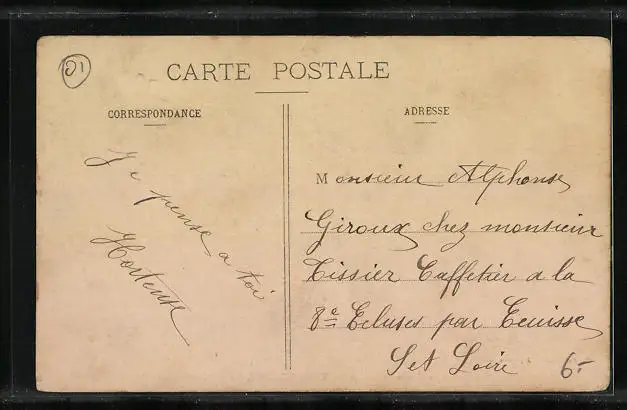 01
CARTE POSTALE
CORRESPONDANCE
Je pense a toi
Hortense
ADRESSE
Monsieur Alphonse
Giroux chez monsieur
Tissier Caffetier a la
8e Ecluses par Ecuisse
S et Loire
6.-